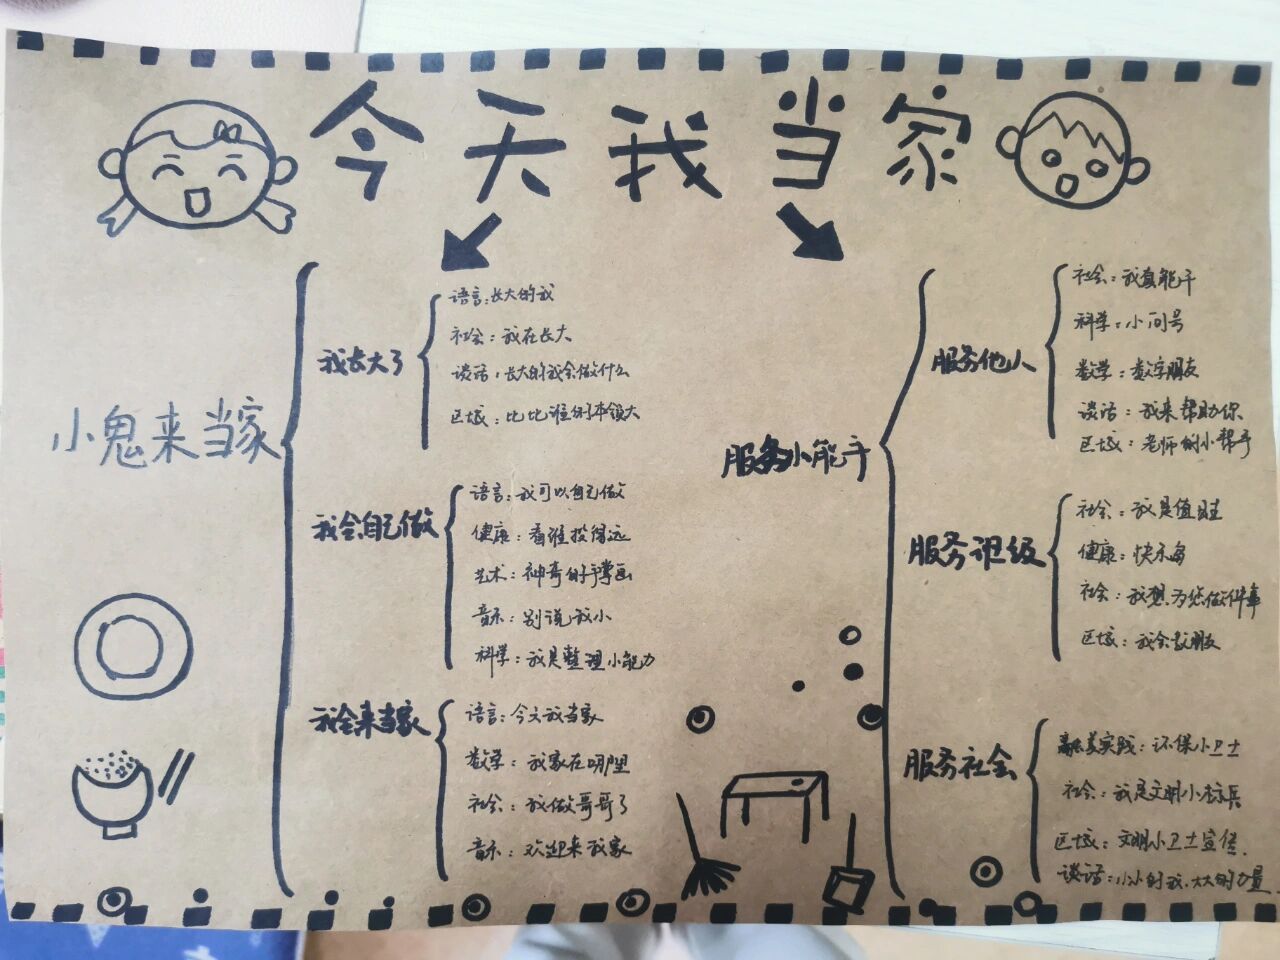 今天我当家
小鬼来当家
我长大了
语言：长大的我
社会：我在长大
谈话：长大的我会做什么
区域：比比谁的本领大
我会自己做
语言：我可以自己做
健康：看谁投得远
艺术：神奇的手掌画
音乐：别说我小
科学：我是整理小能力
我会来当家
语言：今天我当家
数学：我家在哪里
社会：我做哥哥了
音乐：欢迎来我家
服务小能手
服务他人
社会：我真能干
科学：小问号
数学：数字朋友
谈话：我来帮助你
区域：老师的小帮手
服务班级
社会：我是值日生
健康：快乐
社会：我想为您做件事
区域：我会
服务社会
实践：环保小卫士
社会：我是文明小标兵
区域：文明小卫士宣传.
谈话：小小的我.大大的力量.